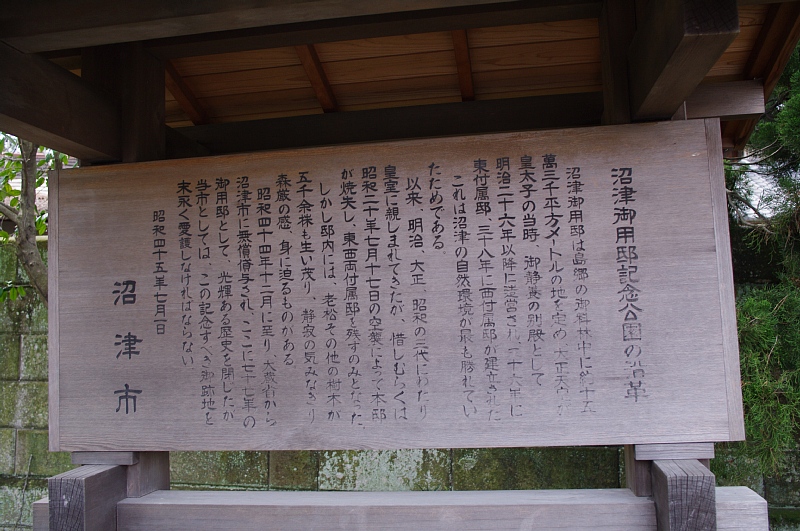 沼津御用邸記念公園の沿革
沼津御用邸は島郷の御料林中に約十五
萬三千平方メートルの地を定め 大正天皇
皇太子の当時、御静養の別殿として
明治二十六年以降に造営され 三十六年に
東付属邸、三十八年に西付属邸が建立された
これは沼津の自然環境が最も勝れてい
たためである
以来 明治、大正、昭和の三代にわたり
皇室に親しまれてきたが、惜しむらくは
昭和二十年七月十七日の空襲によって本邸
が焼失し、東西両付属邸を残すのみとなった、
しかし邸内には、老松その他の樹木が
五千余株も生い茂り、静寂の気みなぎり
森厳の感、身に迫るものがある
昭和四十四年十二月に至り 大蔵省から
沼津市に無償貸与され、ここに七十七年の
御用邸として、光輝ある歴史を閉したが
当市としては、この記念すべき御跡地を
末永く愛護しなければならない
昭和四十五年七月一日
沼津市